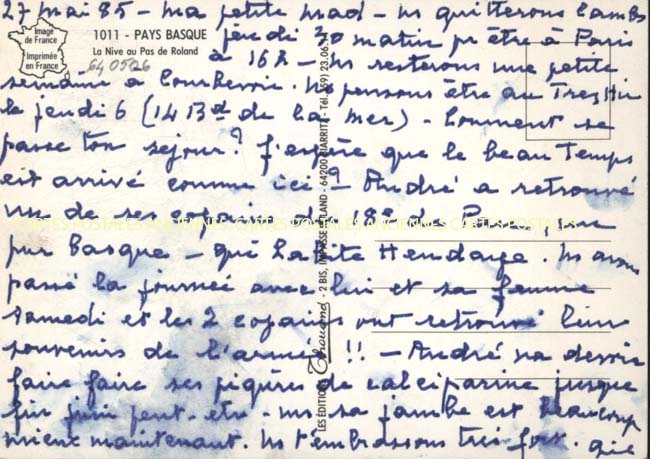 27 mai 85 - ma petite mad - ns quitterons Cambo
Image de France
Imprimée en France
1011 - PAYS BASQUE
La Nive au Pas de Roland
640506
jeudi 30 matin pr être à Paris
à 16h - ns resterons une petite
semaine à Courbevoie. Ns pensons être au Trez Hir
le jeudi 6 (14 Bd de la mer) - Comment se
passe ton séjour? J'espère que le beau temps
est arrivé comme ici? - André a retrouvé
un de ses copains du 18e de Pau, un
pur basque - qui habite Hendaye. Ns avons
passé la journée avec lui et sa femme
samedi et les 2 copains ont retrouvé leurs
souvenirs de l'armée !! - André va devoir
faire faire ses piqûres de calciparine jusque
fin juin peut-etre - ms sa jambe est beaucoup
mieux maintenant. Ns t'embrassons très fort.
CARTES POSTALES ANCIENNES CARTES POSTALES ANCIENNES CARTES POSTALES
LES ÉDITIONS Thouand - 2 BIS, IMPASSE - 64200 BIARRITZ - Tél.